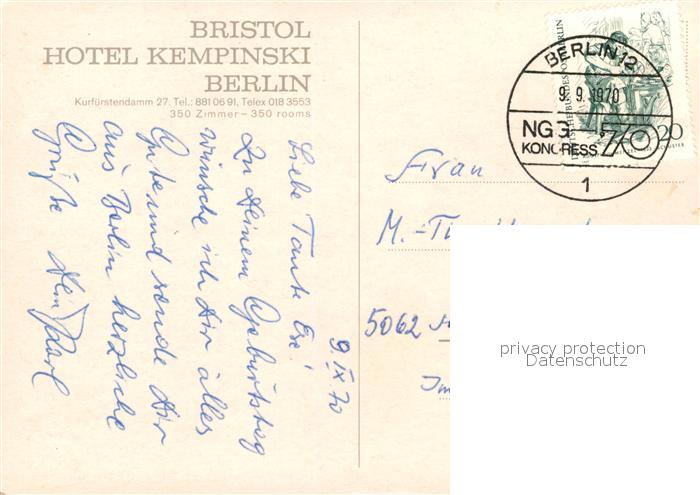 BRISTOL
HOTEL KEMPINSKI
BERLIN
Kurfürstendamm 27. Tel.: 881 06 91, Telex 018 3553
350 Zimmer – 350 rooms
9. IX 70
Liebe Tante
Zu Deinem Geburtstag
wünsche ich Dir alles
Gute und sende Dir
aus Berlin herzliche
Grüße Dein Karl
BERLIN 12
9. 9. 1970
NGG
KONGRESS 70
1
DEUTSCHE BUNDESPOST BERLIN
20
Frau
M.-Th
5062
privacy protection
Datenschutz